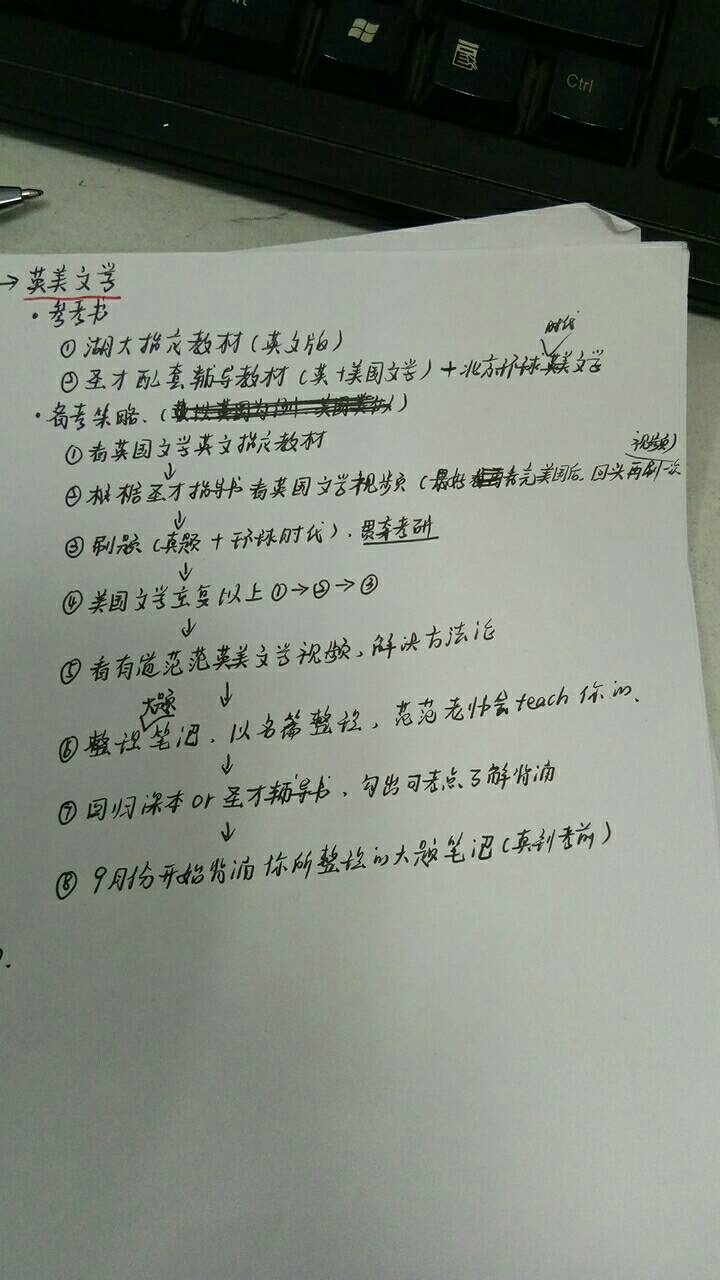 Ctrl
→ 英美文学
· 参考书
① 湖大指定教材(英文版)
② 圣才配套辅导教材(英+美国文学)+北方环球时代英美文学
· 备考策略、
① 看英国文学英文指定教材
↓
② 根据圣才指导书看英国文学视频(最好看完美国后,回头再刷一次视频)
↓
③ 刷题(真题+环球时代).贯穿考研
↓
④ 美国文学重复以上①→②→③
↓
⑤ 看有道范范英美文学视频,解决方法论
↓
⑥ 整理大题笔记,以名篇整理,范范老师会teach你的、
↓
⑦ 回归课本or圣才辅导书,勾出可考点了解背诵
↓
⑧ 9月份开始背诵你所整理的大题笔记(直到考前)